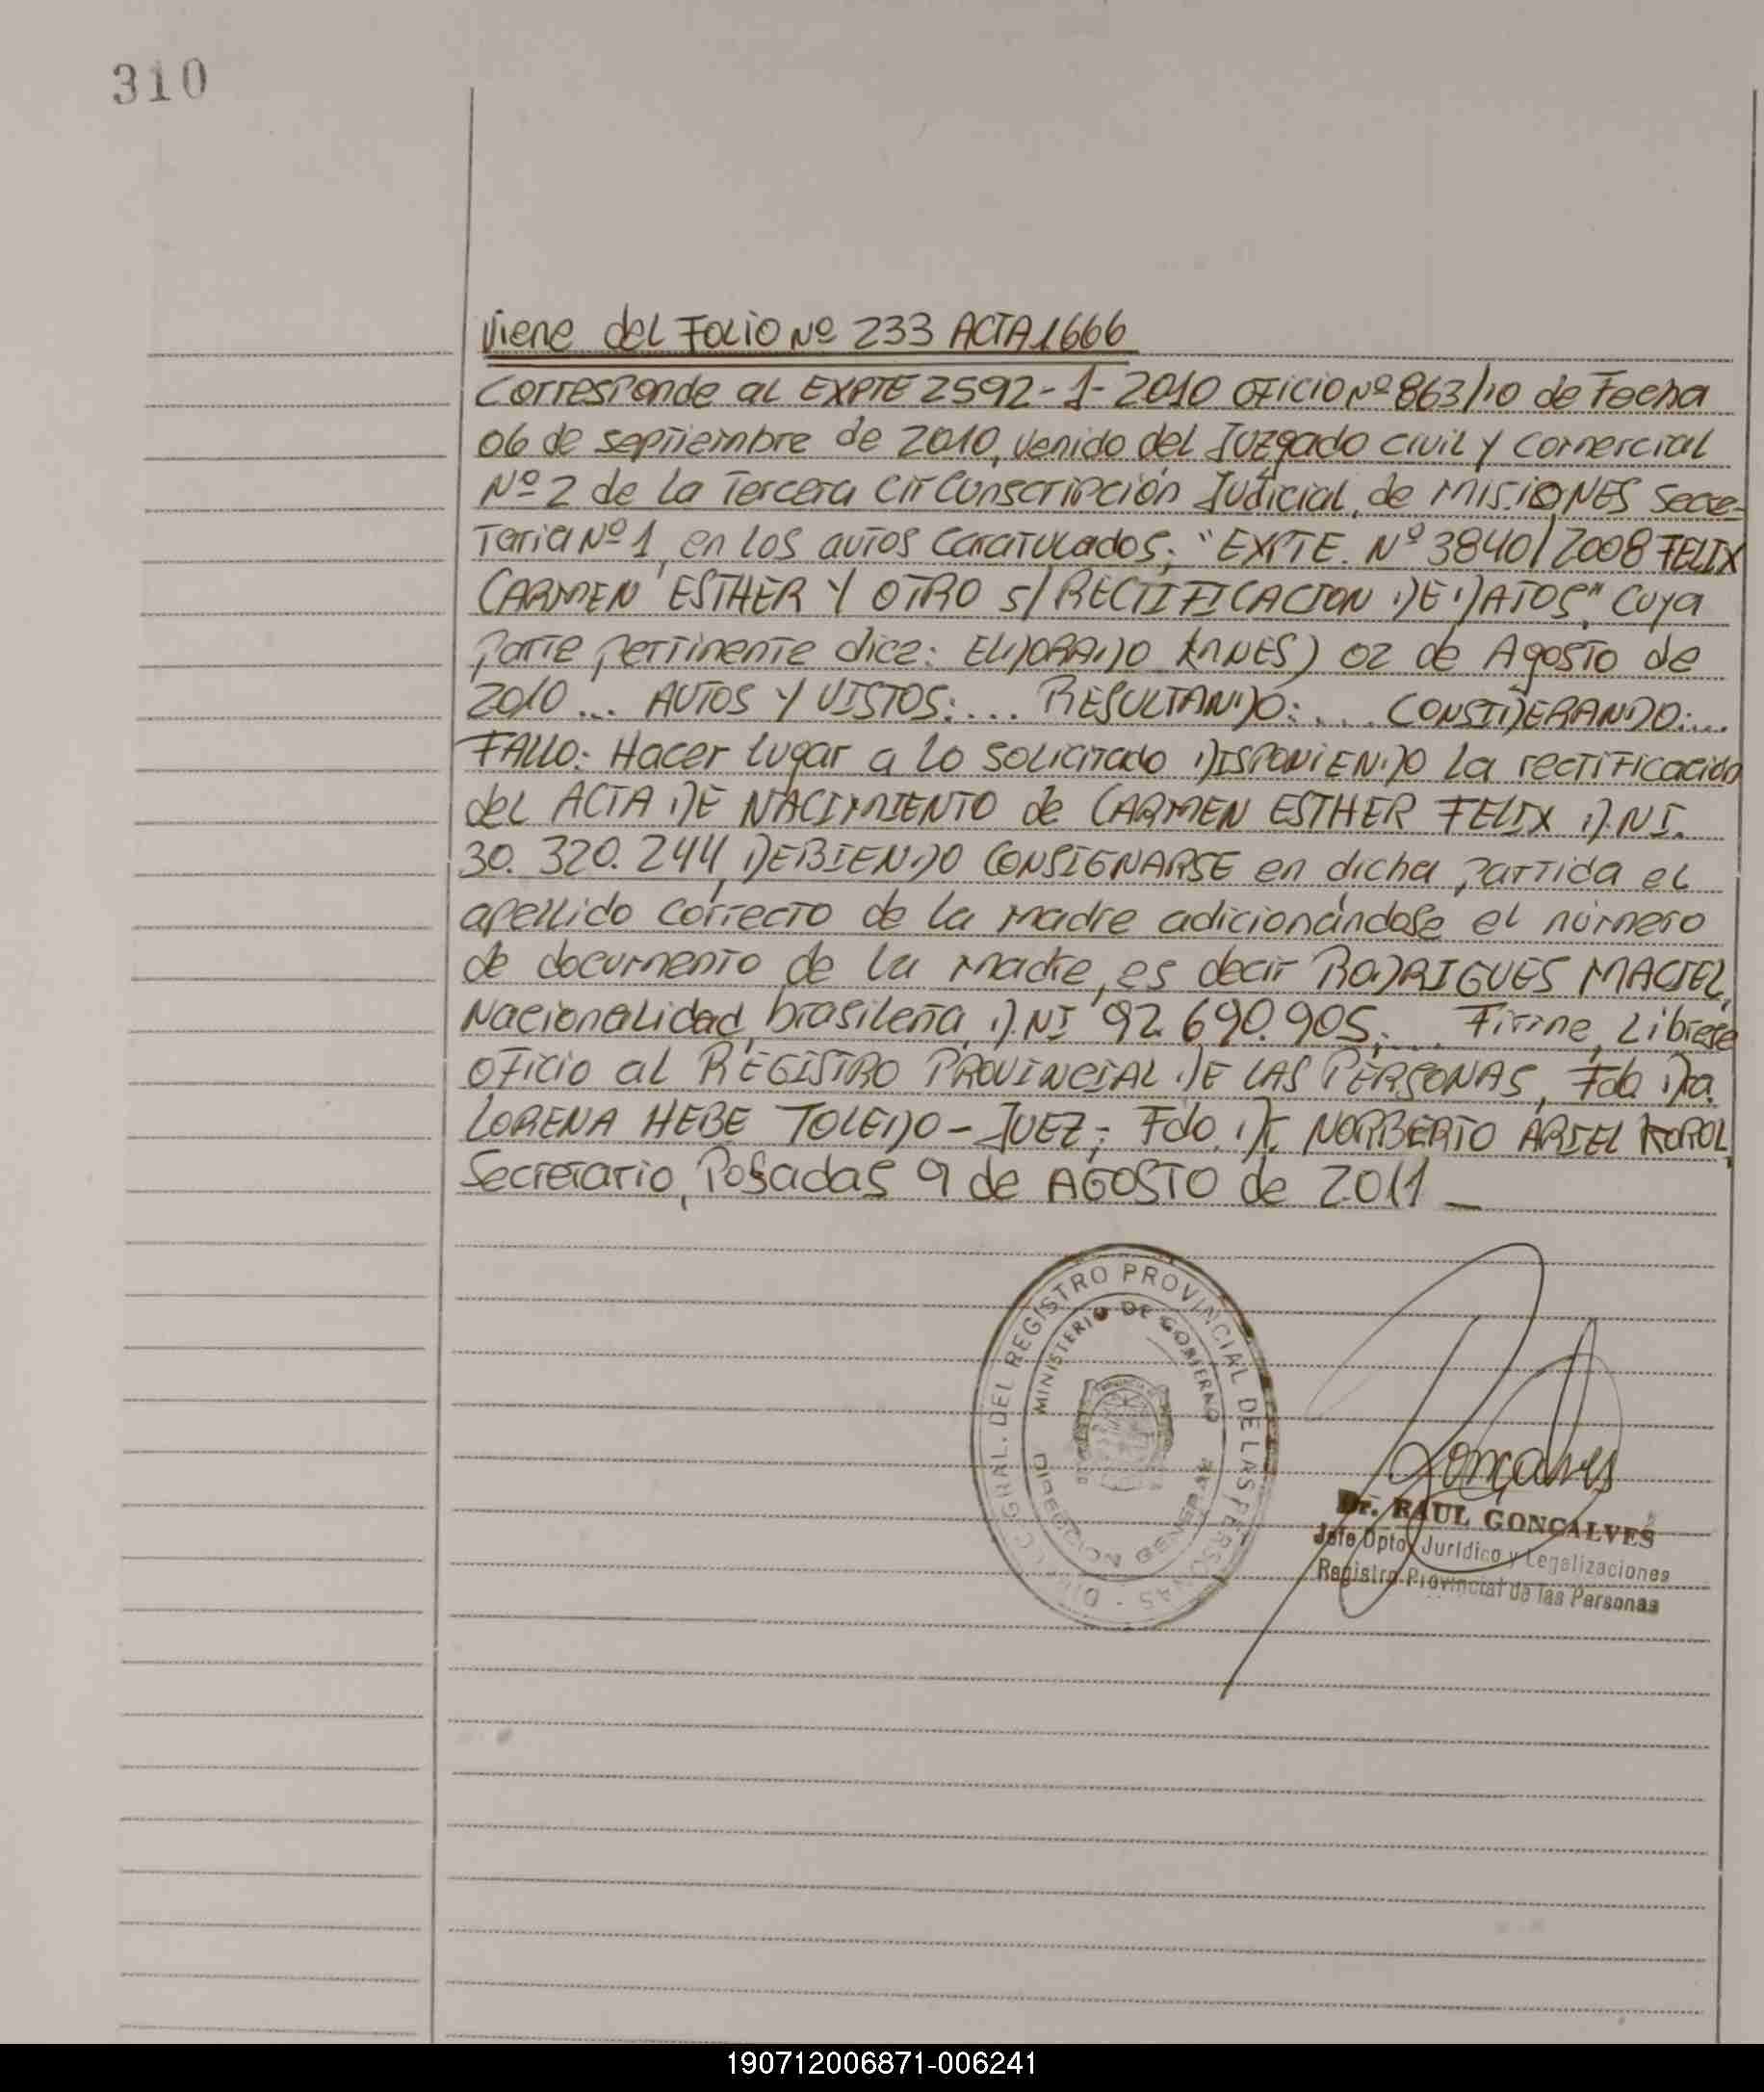 310
Viene del Folio Nº 233 ACTA 1666
Corresponde al EXPTE 2592-1-2010 oficio Nº 863/10 de Fecha
06 de septiembre de 2010, venido del Juzgado civil y comercial
Nº 2 de la Tercera circunscripción Judicial, de MISIONES secre-
Taria Nº 1, en los autos caratulados; "EXPTE. Nº 3840/2008 FELIX
CARMEN ESTHER Y OTRO S/ RECTIFICACION DE DATOS", cuya
parte pertinente dice: ELDORADO (MNES) 02 de Agosto de
2010... AUTOS Y VISTOS:... RESULTANDO:... CONSIDERANDO:...
FALLO: Hacer lugar a lo solicitado DISPONIENDO la rectificación
del ACTA DE NACIMIENTO de CARMEN ESTHER FELIX D.NI.
30.320.244, DEBIENDO CONSIGNARSE en dicha partida el
apellido correcto de la madre adicionándose el número
de documento de la madre, es decir RODRIGUES MACIEL,
Nacionalidad brasileña, D.NI 92.690.905;... Firme, Librese
oficio al REGISTRO PROVINCIAL DE LAS PERSONAS, Fdo Dra.
LORENA HEBE TOLEDO - JUEZ; Fdo. Dr. NORBERTO ARIEL KOROL,
Secretario, Posadas 9 de AGOSTO de 2011 _
DIRECC. GRAL. DEL REGISTRO PROVINCIAL DE LAS PERSONAS -
MINISTERIO DE GOBIERNO
DIRECCION GENERAL
Gonçalves
Dr. RAUL GONÇALVES
Jefe Dpto. Jurídico y Legalizaciones
Registro Provincial de las Personas
190712006871-006241